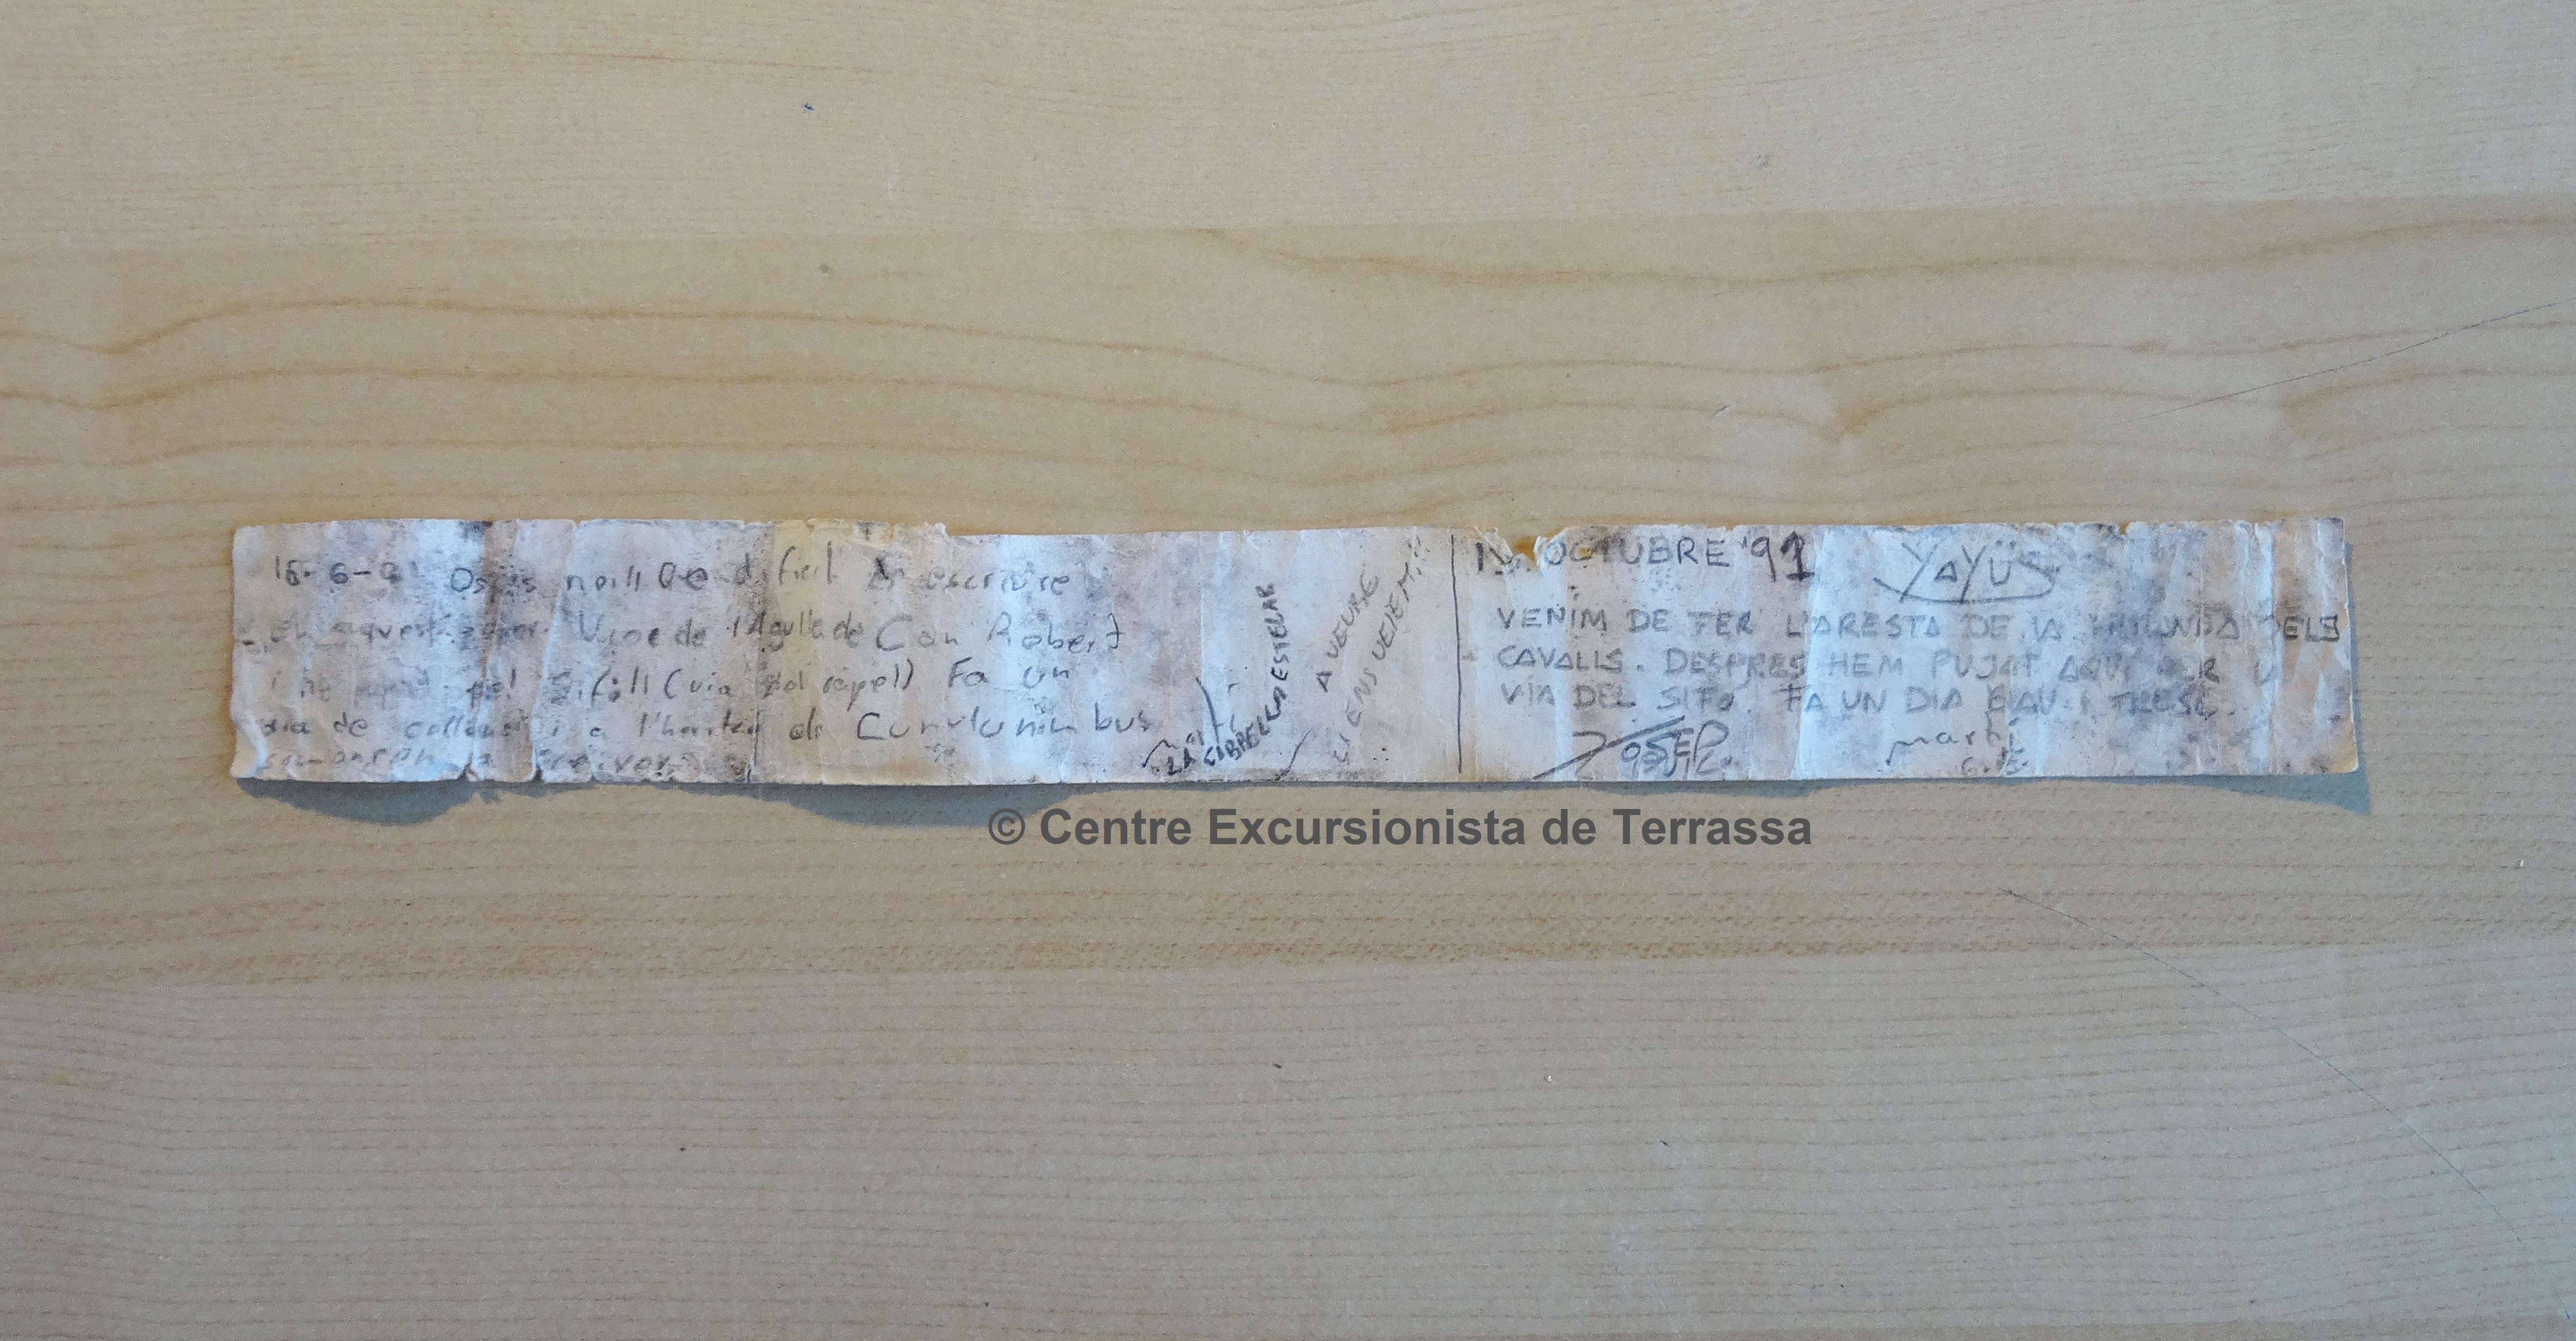 16-6-91 Ostis noi!! Que difícil és escriure
en aquest paper. Vinc de l'Agulla de Can Robert
i he pujat pel Sifó!! (via del ràpel) Fa un
dia de collons i a l'horitzó els Cumulunimbus
comencen a
LA CIBRELLA ESTELAR
A VEURE
SI ENS VEIEM!!
OCTUBRE '91
YAYÜS
VENIM DE FER L'ARESTA DE LA DELS
CAVALLS. DESPRES HEM PUJAT AQUÍ PER LA
VÍA DEL SIFÓ. FA UN DIA BLAU I TRIST.
JOSEP
Martí
© Centre Excursionista de Terrassa